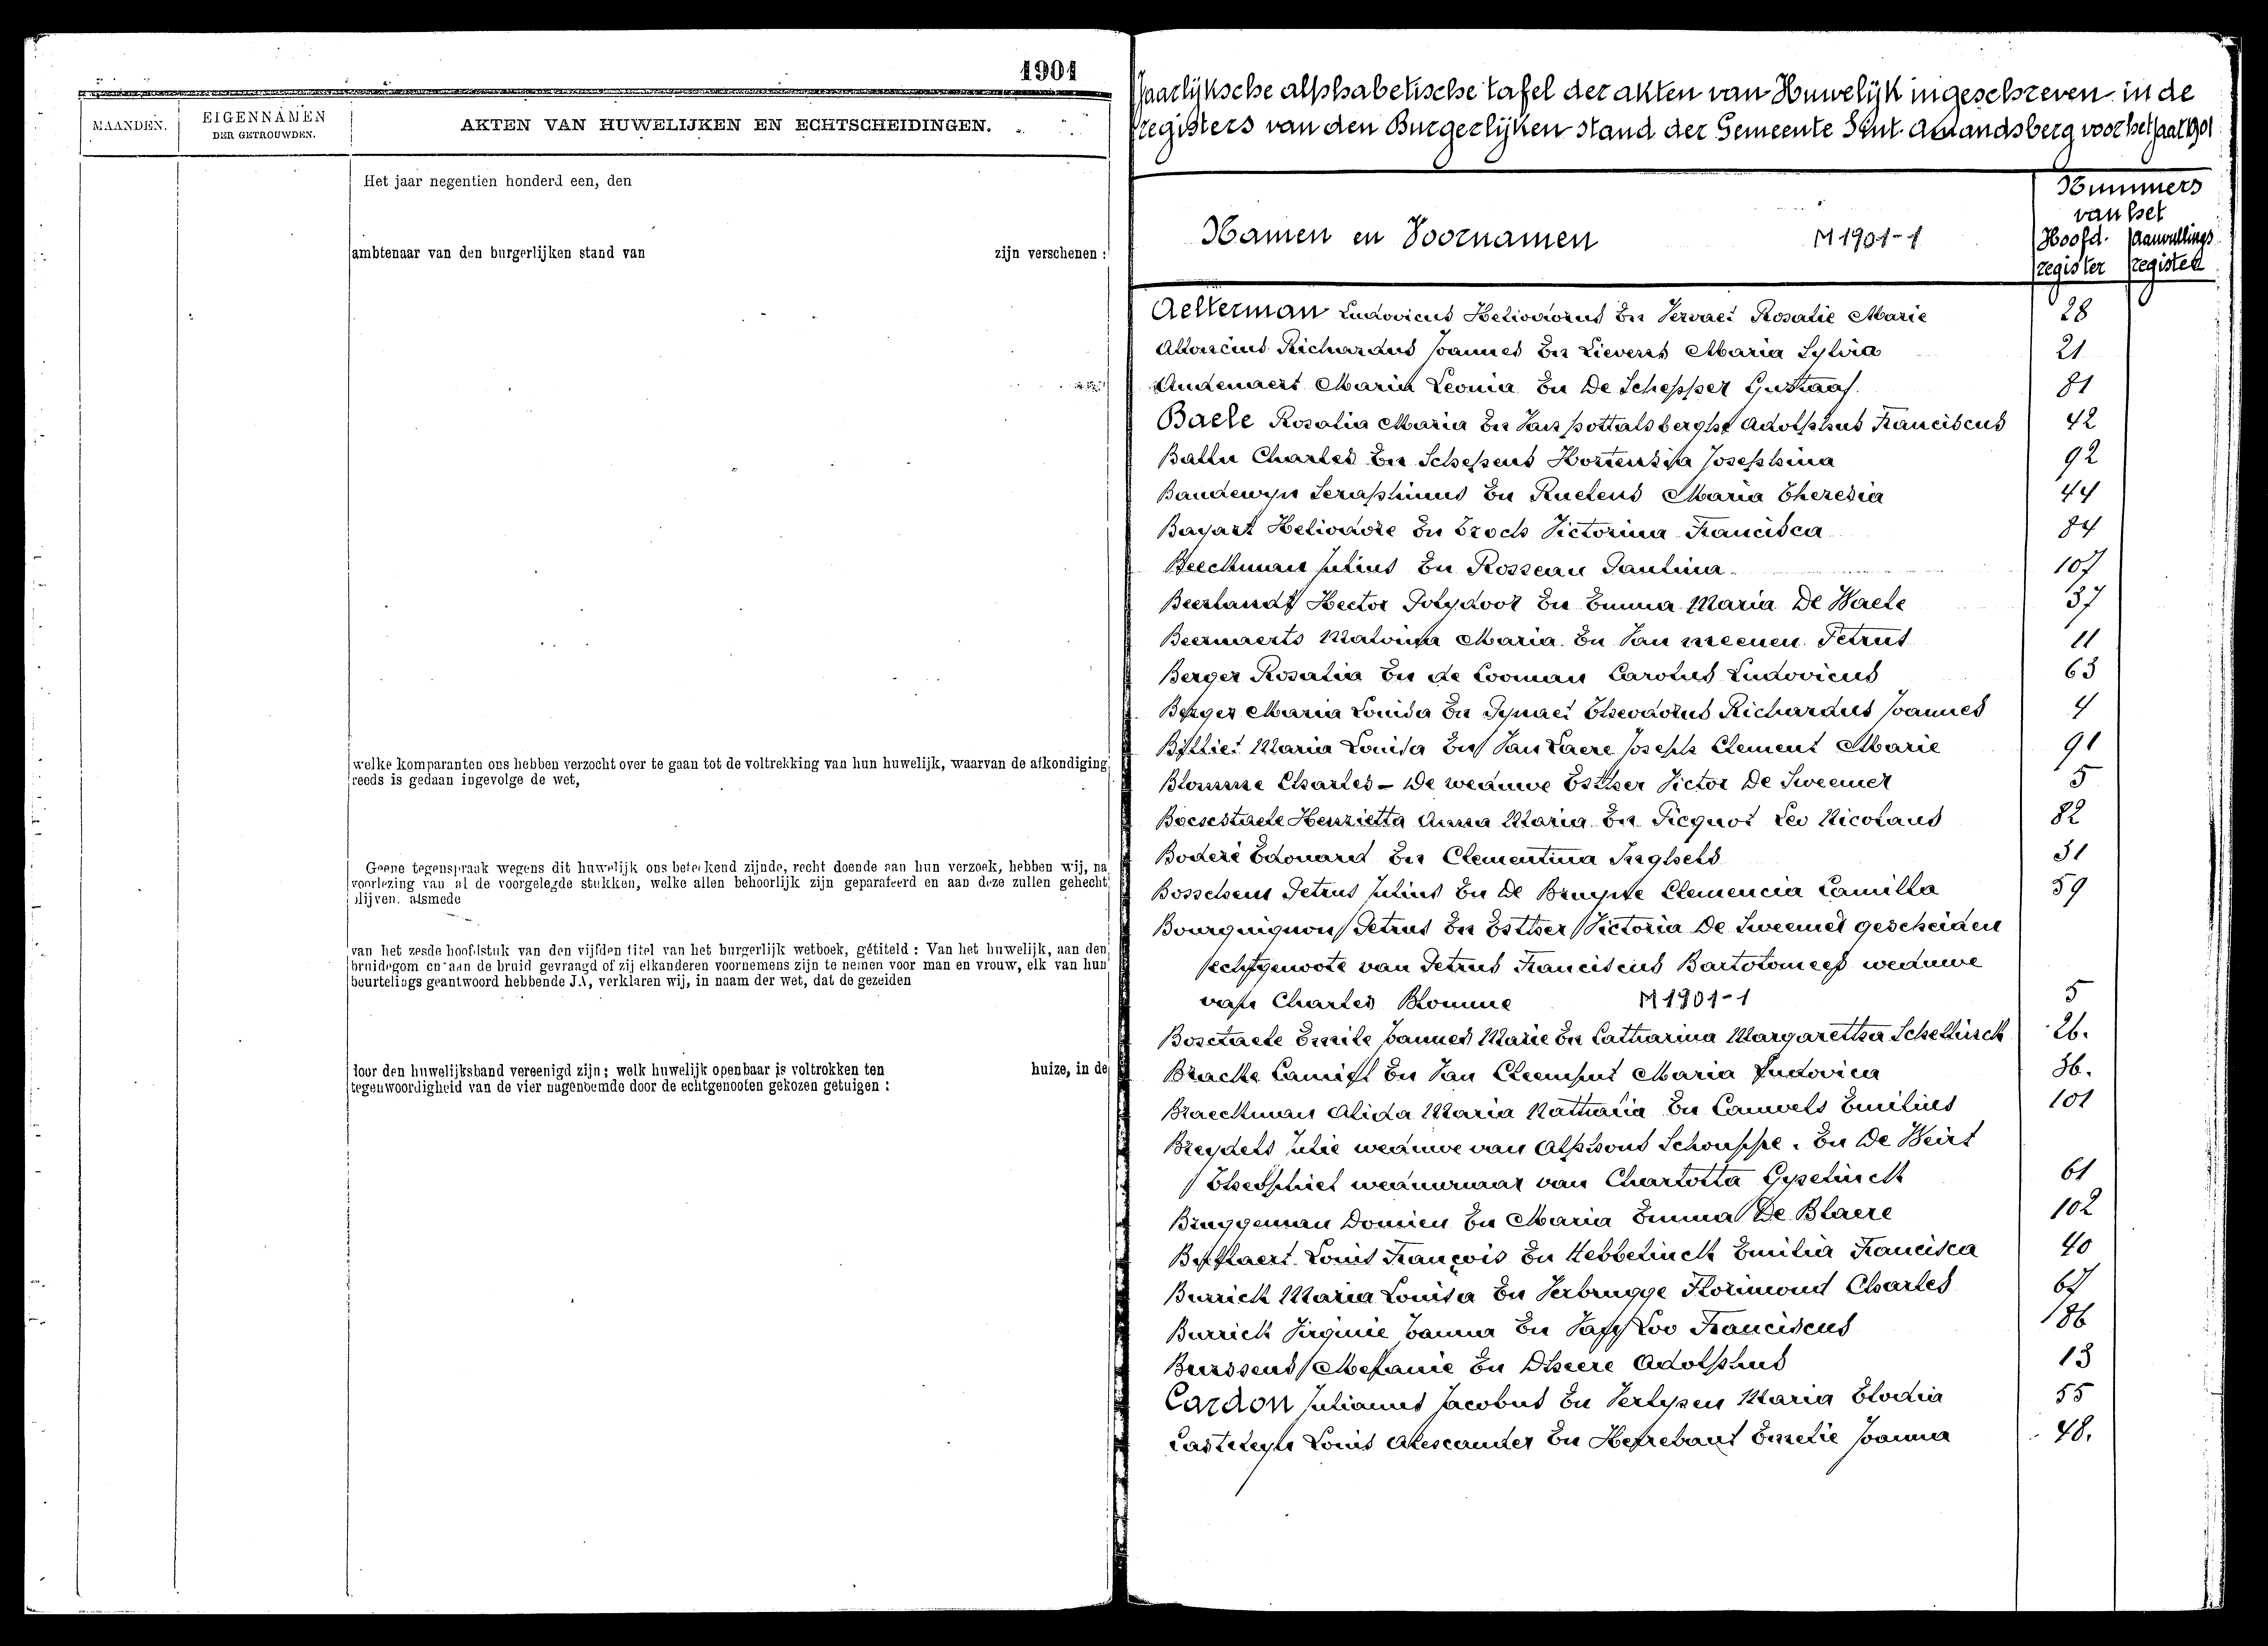 1901
MAANDEN.
EIGENNAMEN
DER GETROUWDEN.
AKTEN VAN HUWELIJKEN EN ECHTSCHEIDINGEN.
Het jaar negentien honderd een, den
ambtenaar van den burgerlijken stand van zijn verschenen :
welke komparanten ons hebben verzocht over te gaan tot de voltrekking van hun huwelijk, waarvan de afkondiging
reeds is gedaan ingevolge de wet,
Geene tegenspraak wegens dit huwelijk ons beteekend zijnde, recht doende aan hun verzoek, hebben wij, na
voorlezing van al de voorgelegde stukken, welke allen behoorlijk zijn geparafeerd en aan deze zullen gehecht
blijven. alsmede
van het zesde hoofdstuk van den vijfden titel van het burgerlijk wetboek, getiteld : Van het huwelijk, aan den
bruidegom en aan de bruid gevraagd of zij elkanderen voornemens zijn te nemen voor man en vrouw, elk van hun
beurtelings geantwoord hebbende JA, verklaren wij, in naam der wet, dat de gezeiden
door den huwelijksband vereenigd zijn; welk huwelijk openbaar is voltrokken ten huize, in de
tegenwoordigheid van de vier nagenoemde door de echtgenooten gekozen getuigen :
Jaarlijksche alphabetische tafel der akten van Huwelijk ingeschreven in de
registers van den Burgerlijken stand der Gemeente Sint Amandsberg voor het jaar 1901
Namen en Voornamen M 1901-1
Nummers
van het
Hoofd. Aanvullings
register register
Aelterman Ludovicus Heliodorus En Vervaet Rosalie Marie 28
Richardus Joannes En Lievens Maria Sylvia 21
Audenaert Maria Leonia En De Schepper Gustaaf. 81
Baele Rosalia Maria En Van pottalsberghe Adolphus Franciscus 42
Charles En Schepens Hortensia Josephina 92
Baudewyn Seraphinus En Ruelens Maria Theresia 44
Bayart Heliodore En Troch Victorina Francisca 84
Beeckman Julius En Rosseau Paulina 107
Beerlandt Hector Polydoor En Emma Maria De Waele 37
Beernaerts Malvina Maria En Van meenen Petrus 11
Berger Rosalia En de Cooman Carolus Ludovicus 63
Berger Maria Louisa En Theodorus Richardus Joannes 4
Billiet Maria Louisa En Van Laere Joseph Clement Marie 91
Blomme Charles - De weduwe Esther Victor De Sweemer 5
Henrietta Anna Maria En Picquot Leo Nicolaus 82
Boderé Edouard En Clementina 31
Bosschem Petrus Julius En De Bruyne Clemencia Camilla 59
Bourguignon Petrus En Esther Victoria De Sweemer gescheiden
echtgenoote van Petrus Franciscus Bartolomeef weduwe
van Charles Blomme M 1901-1 5
Emile Joannes Marie En Catharina Margaretha Schellinck 26.
Bracke Camiel En Van Cleemput Maria Ludovica 36.
Braeckman Alida Maria Nathalia En Cauwels Emilius 101
Breydels Julie weduwe van Alphons Schouppe. En De Weirt
Theophiel weduwnaar van Charlotta Gyselinck 61
Bruggeman Domien En Maria Emma De Blaere 102
Louis François En Hebbelinck Emilia Francisca 40
Burrick Maria Louisa En Verbrugge Florimond Charles 67
Burrick Virginie Joanna En Van Loo Franciscus 86
Burssens Melanie En Dheere Adolphus 13
Cardon Julianus Jacobus En Verlysen Maria Elodia 55
Casteleyn Louis Alexcander En Herrebaut Emelie Joanna 48.